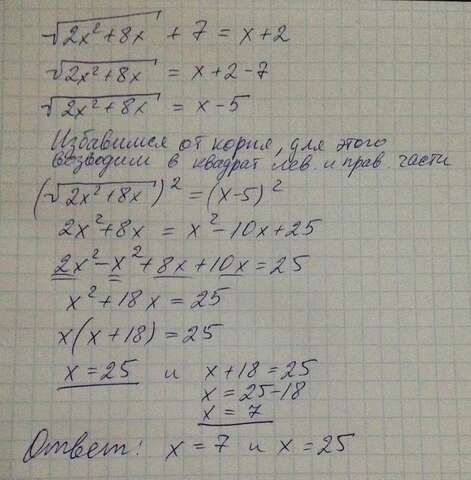 √(2x²+8x) + 7 = x+2
√(2x²+8x) = x+2-7
√(2x²+8x) = x-5
Избавимся от корня, для этого
возводим в квадрат лев. и прав части
(√(2x²+8x))² = (x-5)²
2x²+8x = x²-10x+25
2x²-x²+8x+10x=25
x²+18x=25
x(x+18)=25
x=25 и x+18=25
x=25-18
x=7
Ответ: x=7 и x=25